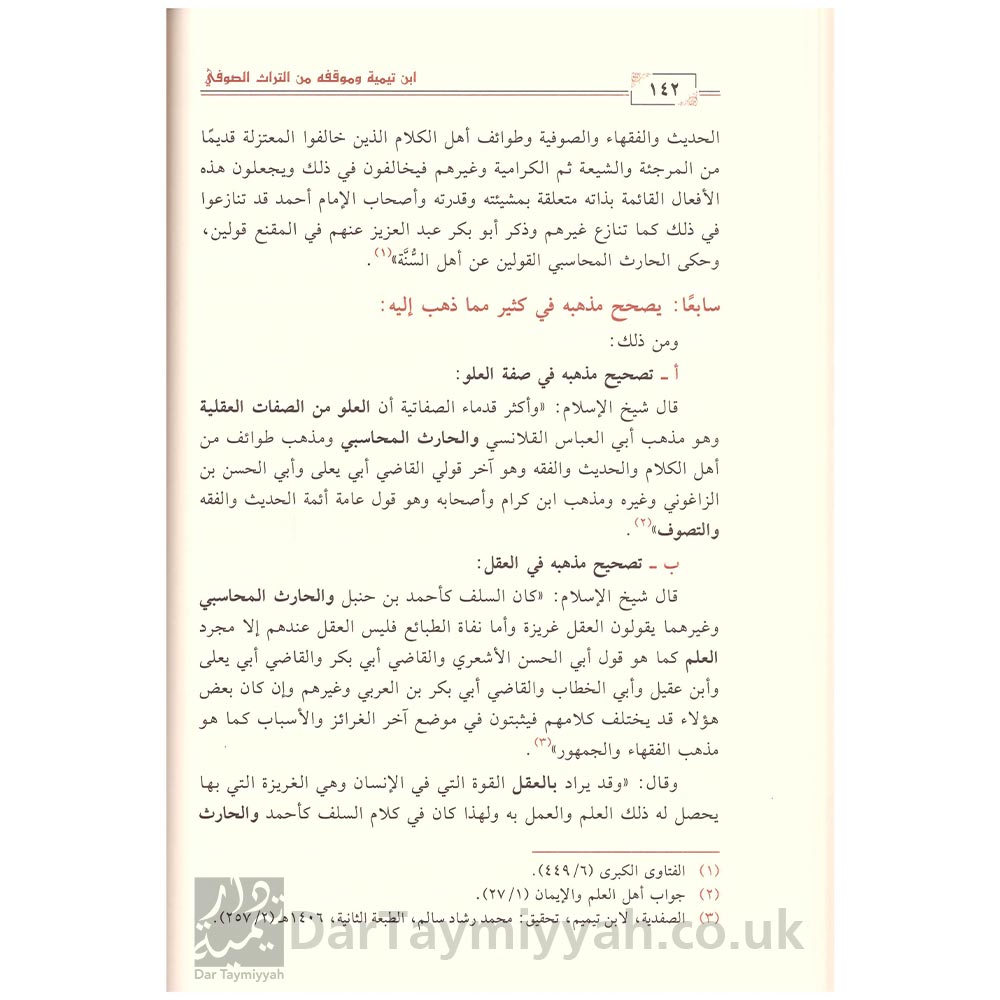 ابن تيمية وموقفه من التراث الصوفي
١٤٢
الحديث والفقهاء والصوفية وطوائف أهل الكلام الذين خالفوا المعتزلة قديمًا
من المرجئة والشيعة ثم الكرامية وغيرهم فيخالفون في ذلك ويجعلون هذه
الأفعال القائمة بذاته متعلقة بمشيئته وقدرته وأصحاب الإمام أحمد قد تنازعوا
في ذلك كما تنازع غيرهم وذكر أبو بكر عبد العزيز عنهم في المقنع قولين،
وحكى الحارث المحاسبي القولين عن أهل السُّنَّة»(١).
سابعًا: يصحح مذهبه في كثير مما ذهب إليه:
ومن ذلك:
أ ـ تصحيح مذهبه في صفة العلو:
قال شيخ الإسلام: «وأكثر قدماء الصفاتية أن العلو من الصفات العقلية
وهو مذهب أبي العباس القلانسي والحارث المحاسبي ومذهب طوائف من
أهل الكلام والحديث والفقه وهو آخر قولي القاضي أبي يعلى وأبي الحسن بن
الزاغوني وغيره ومذهب ابن كرام وأصحابه وهو قول عامة أئمة الحديث والفقه
والتصوف»(٢).
ب ـ تصحيح مذهبه في العقل:
قال شيخ الإسلام: «كان السلف كأحمد بن حنبل والحارث المحاسبي
وغيرهما يقولون العقل غريزة وأما نفاة الطبائع فليس العقل عندهم إلا مجرد
العلم كما هو قول أبي الحسن الأشعري والقاضي أبي بكر والقاضي أبي يعلى
وأبن عقيل وأبي الخطاب والقاضي أبي بكر بن العربي وغيرهم وإن كان بعض
هؤلاء قد يختلف كلامهم فيثبتون في موضع آخر الغرائز والأسباب كما هو
مذهب الفقهاء والجمهور»(٣).
وقال: «وقد يراد بالعقل القوة التي في الإنسان وهي الغريزة التي بها
يحصل له ذلك العلم والعمل به ولهذا كان في كلام السلف كأحمد والحارث
(١) الفتاوى الكبرى (٤٤٩/٦).
(٢) جواب أهل العلم والإيمان (٢٧/١).
(٣) الصفدية، لابن تيميم، تحقيق: محمد رشاد سالم، الطبعة الثانية، ١٤٠٦هـ (٢٥٧/٢).
دار تيمية
Dar Taymiyyah
DarTaymiyyah.co.uk